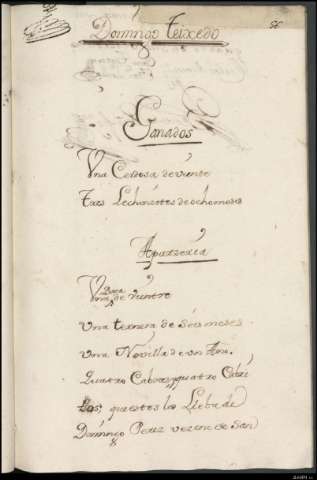 56
Domingo Teixedo
Ganados
Una Cerdosa de vientre
Tres Lechonsotes de ocho meses
Aparzeria
Una Baca de vientre
Una ternera de seis meses
Una Novilla de un Ano.
Quatro Cabras, y quatro Cabri
tos, que estos los lleba de
Domingo Perez vecino de San